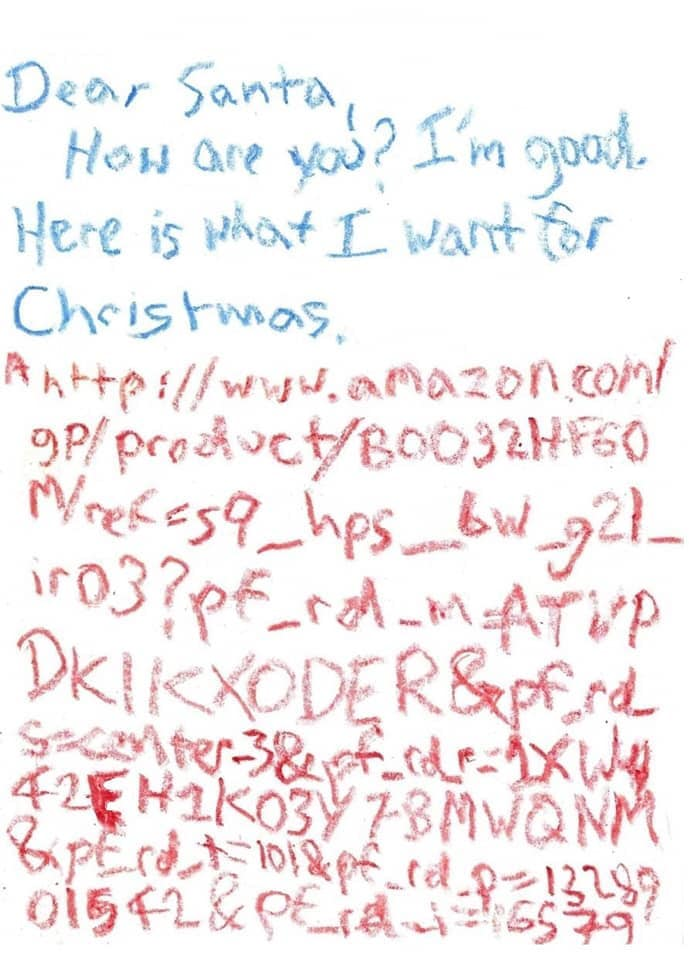 Dear Santa,
How are you? I'm good.
Here is what I want for
Christmas.
A http://www.amazon.com/
gp/product/B0032HF60
M/ref=s9_hps_bw_g21_
ir03?pf_rd_m=ATVP
DKIKX0DER&pf_rd_
s=center-3&pf_rd_r=1XWY
42EH1K03Y7BMWQNM
&pf_rd_t=101&pf_rd_p=13289
01542&pf_rd_i=165579